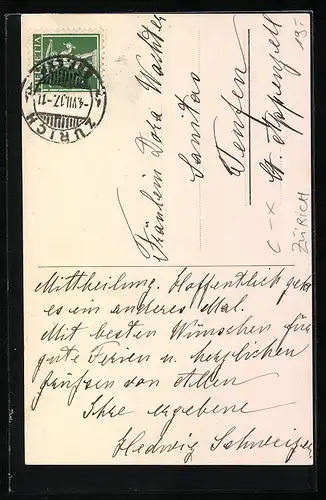 HELVETIA
ZÜRICH
-4.VII.17.-11
Fräulein Dora Wachter
Sanitas
Teufen
Kt. Appenzell
19.-
C-X
ZÜRICH
Mittheilung. Hoffentlich geht
es ein anderes Mal.
Mit besten Wünschen für
gute Ferien u. herzlichen
Grüssen von Allen
Ihre ergebene
Hedwig Schweizer.